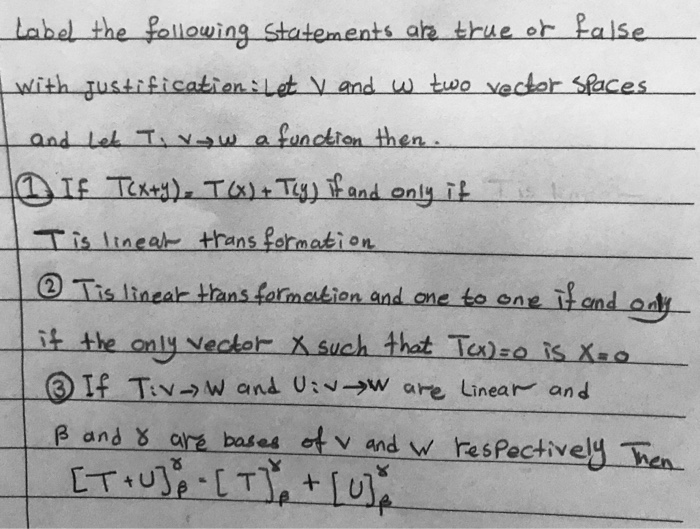 Label the following statements are true or false
with Justification: Let V and W two vector spaces
and Let T: V→W a function then.
① If T(x+y) = T(x) + T(y) if and only if
T is linear transformation
② T is linear transformation and one to one if and only
if the only vector X such that T(x)=0 is X=0
③ If T:V→W and U:V→W are Linear and
β and γ are bases of V and W respectively Then
[T+U]ᵧβ = [T]ᵧβ + [U]ᵧβ